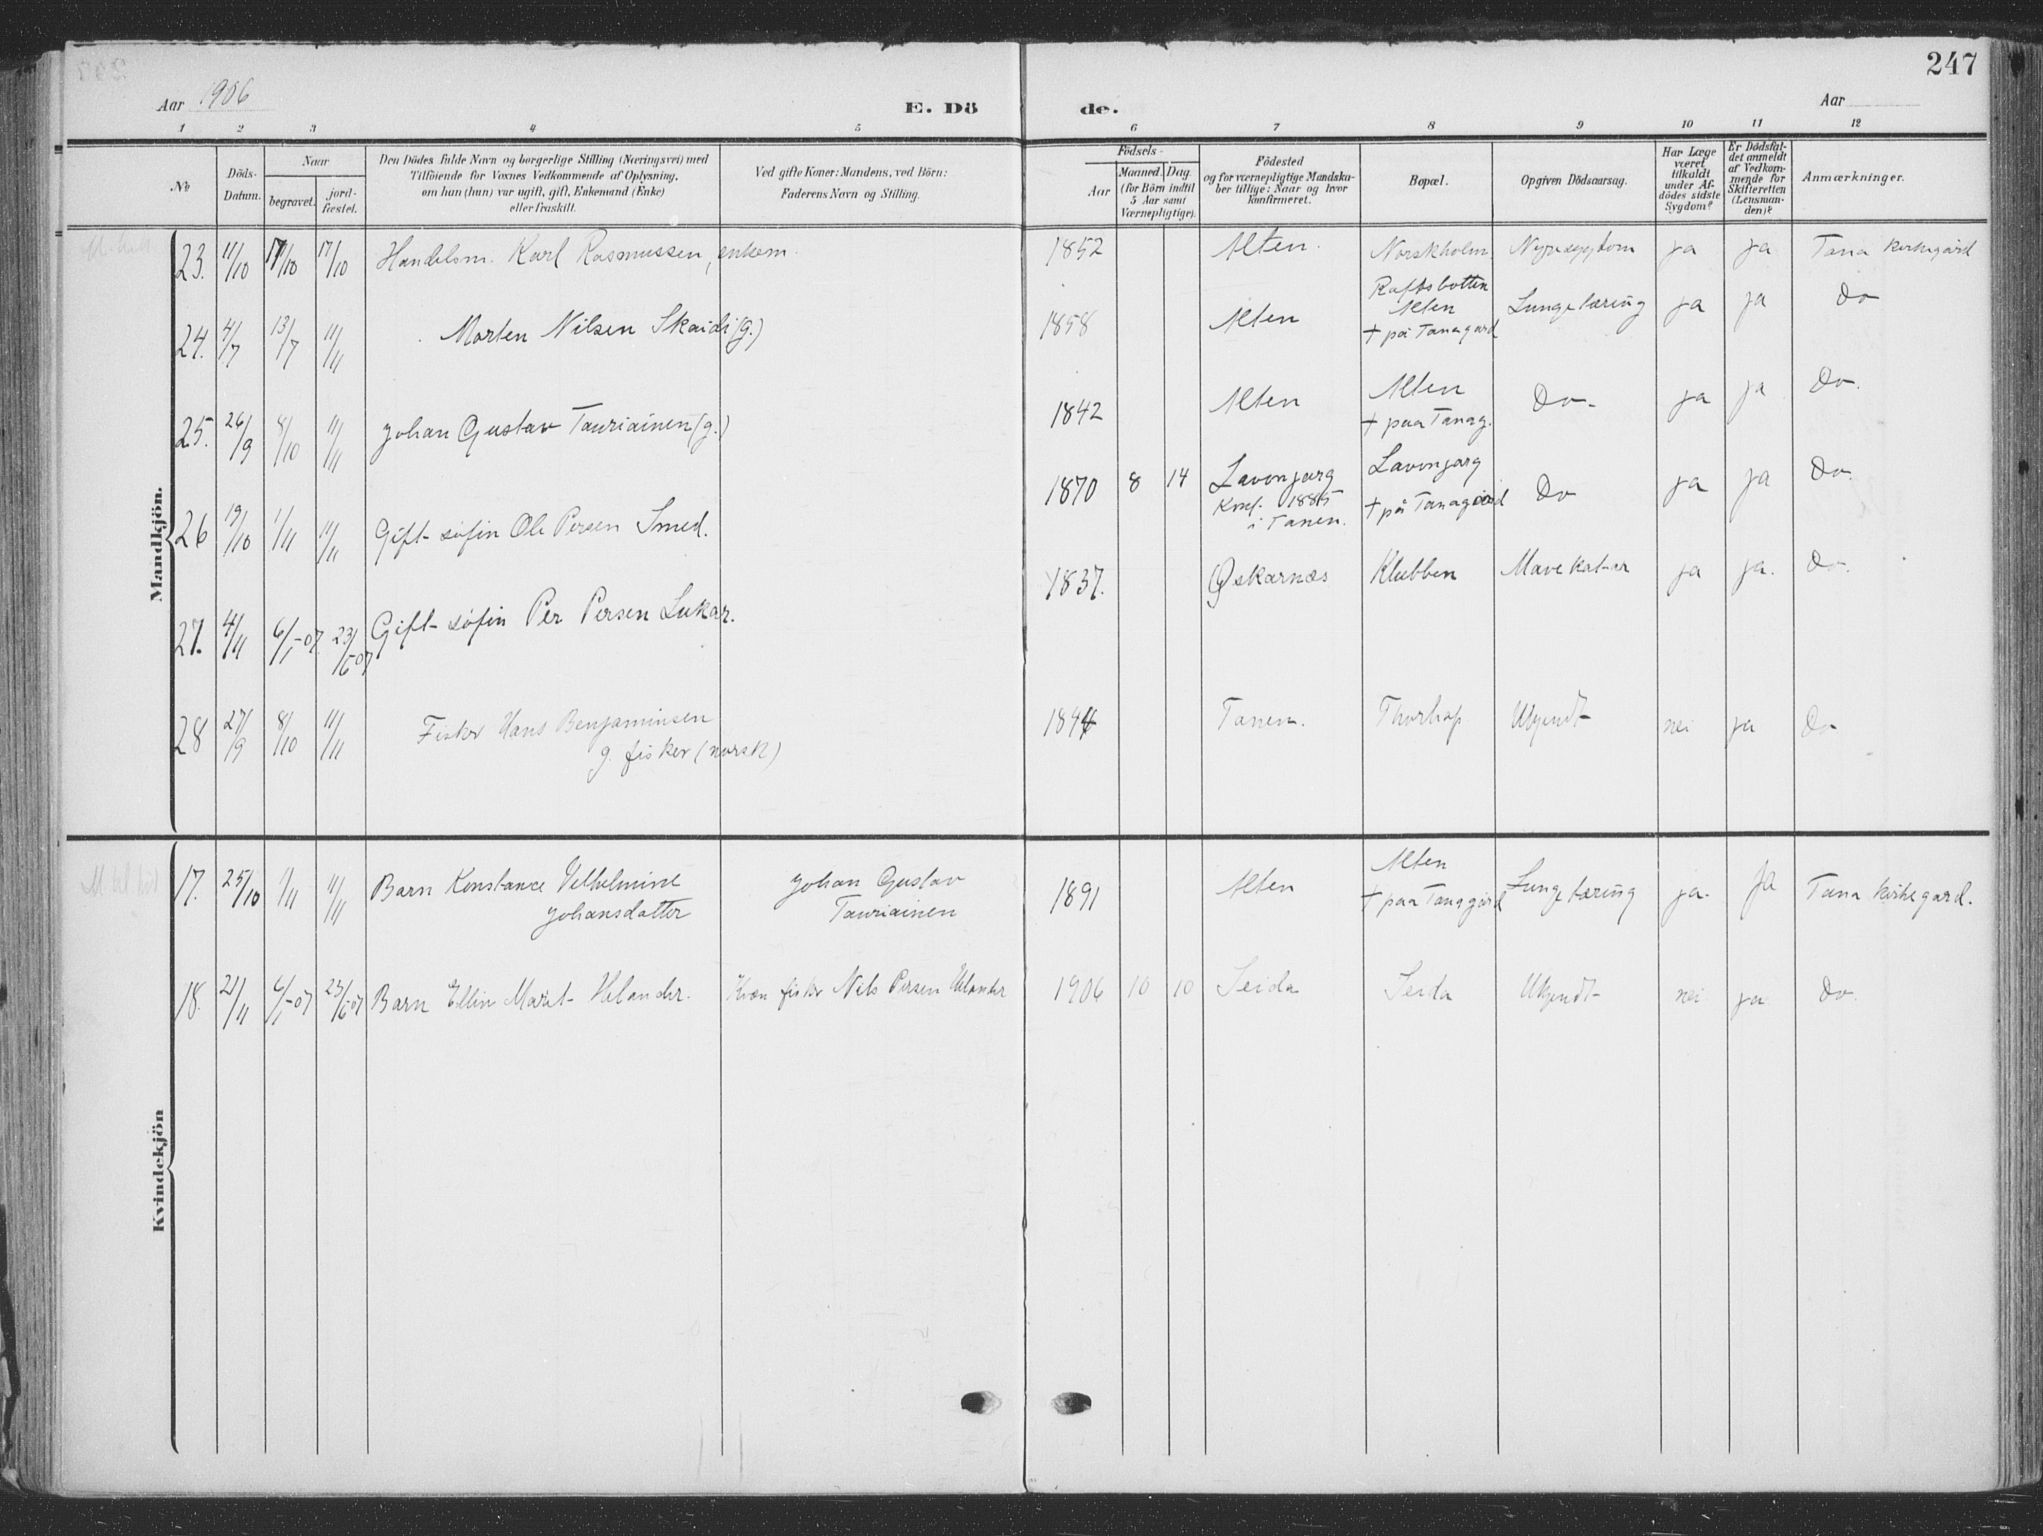 247
Aar 1906
E. Dö
de.
Aar
1 2 3 4 5 6 7 8 9 10 11 12
No
Döds-
Datum.
Naar
begravet.
jord-
fæstet.
Den Dödes fulde Navn og borgerlige Stilling (Næringsvei) med
Tilföiende for Voxnes Vedkommende af Oplysning,
om han (hun) var ugift, gift, Enkemand (Enke)
eller fraskilt.
Ved gifte Koner: Mandens, ved Börn:
Faderens Navn og Stilling.
Födsels-
Aar
Maaned. Dag.
(for Börn indtil
5 Aar samt
Værnepligtige).
Födested
og for værnepligtige Mandska-
ber tillige: Naar og hvor
konfirmeret.
Bopæl.
Opgiven Dödsaarsag.
Har Læge
været
tilkaldt
under Af-
dödes sidste
Sygdom?
Er Dødsfal-
det anmeldt
af Vedkom-
mende for
Skifteretten
(Lensman-
den)?
Anmærkninger.
Mandkjön.
23. 11/10 17/10 17/10 Handelsm. Karl Rasmussen, enkem. 1852 Alten. Norskholm Nyresygdom ja ja Tana kirkegård
24. 4/7 13/7 11/11 Morten Nilsen Skaidi (g.) 1858 Alten Rafsbotten
Alten
+ på Tanagård Lungetæring ja ja Do
25. 26/9 8/10 11/11 Johan Gustav Tauriainen (g.) 1842 Alten Alten
+ paa Tanag. Do- ja ja Do.
26 19/10 1/11 11/11 Gift søfin Ole Persen Smed. 1870 8 14 Lavonjarg
Konf. 1885
i Tanen. Lavonjarg
+ på Tanagård Do ja ja Do.
27. 4/11 6/1-07 23/6-07 Gift søfin Per Persen Lukar. 1837. Oskarnæs Klubben Mavekatar ja ja. Do.
28 27/9 8/10 11/11 Fisker Hans Benjaminsen
g. fisker (norsk) 1844 Tanen. Thorhop Ukjendt nei ja Do
Kvindekjön
17. 25/10 1/11 11/11 Barn Konstance Vilhelmine
Johansdatter Johan Gustav
Tauriainen 1891 Alten Alten
+ paa Tanagård Lungetæring ja. ja Tana kirkegard.
18. 21/11 6/1-07 23/6-07 Barn Ellin Marit Helander. Kvæn fisker Nils Persen Helander 1906 10 10 Seida Seida Ukjendt nei ja Do.